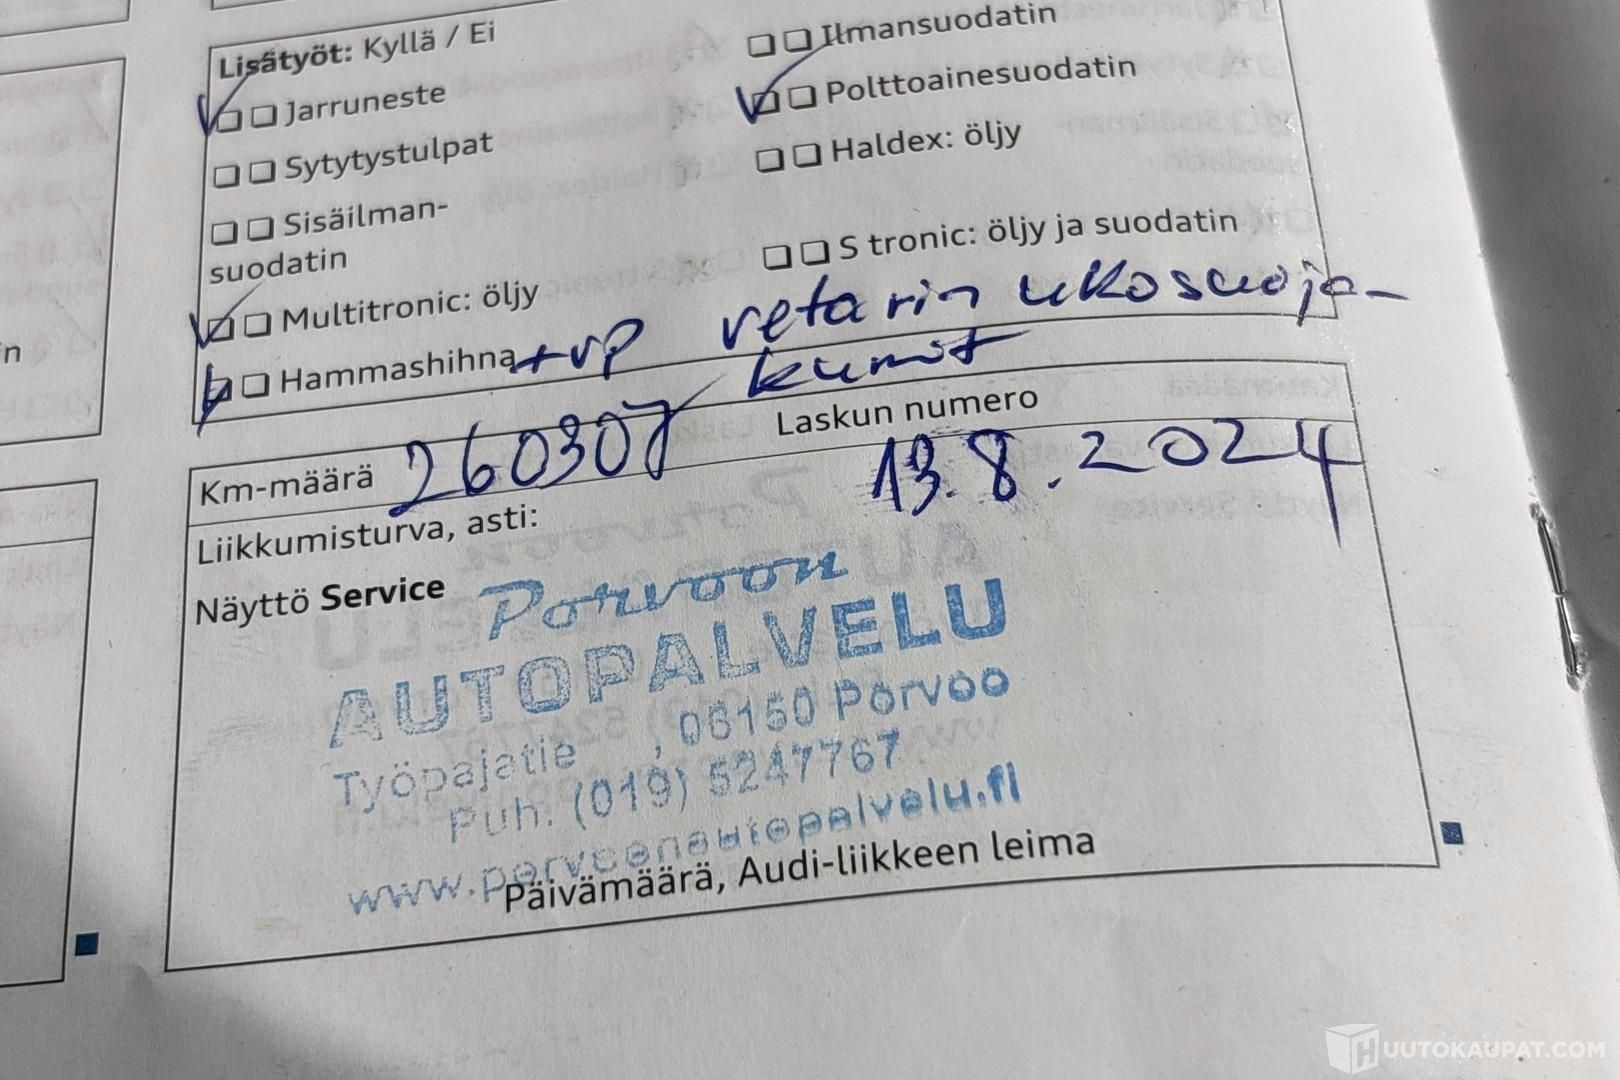 Lisätyöt: Kyllä / Ei
Jarruneste
Sytytystulpat
Sisäilman-
suodatin
Multitronic: öljy
Hammashihna +vp
Ilmansuodatin
Polttoainesuodatin
Haldex: öljy
S tronic: öljy ja suodatin
vetarin ukosuoja-
kumit
Km-määrä 260307
Laskun numero
13.8.2024
Liikkumisturva, asti:
Näyttö Service
Porvoon
AUTOPALVELU
Työpajatie , 06150 Porvoo
Puh. (019) 5247767
www.porvoonautopalvelu.fi
Päivämäärä, Audi-liikkeen leima
n
HUUTOKAUPAT.COM